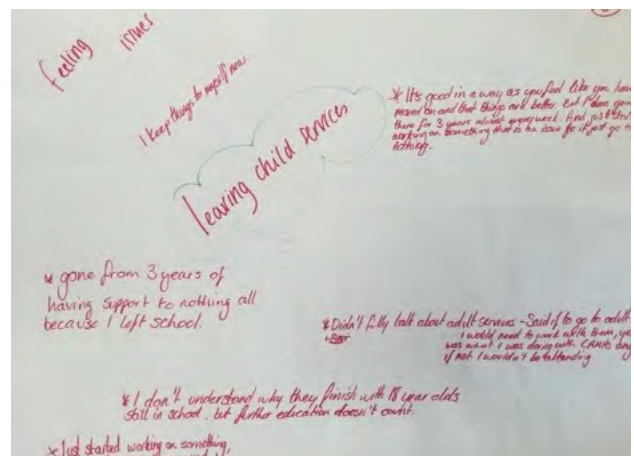 feeling issues
I keep things to myself now
leaving child services
* It's good in a way as you feel like you have
moved on and that things are better. But I was
there for 3 years almost every week. And just
working on something that is an issue for it just go
nothing.
* gone from 3 years of
having support to nothing all
because I left school.
* Didn't fully talk about adult services - Said if to go to adult
I would need to work with them, 
was what I was doing with CAMHS
if not I wouldn't be attending
* I don't understand why they finish with 18 year olds
still in school. but further education doesn't count.
* Just started working on something,